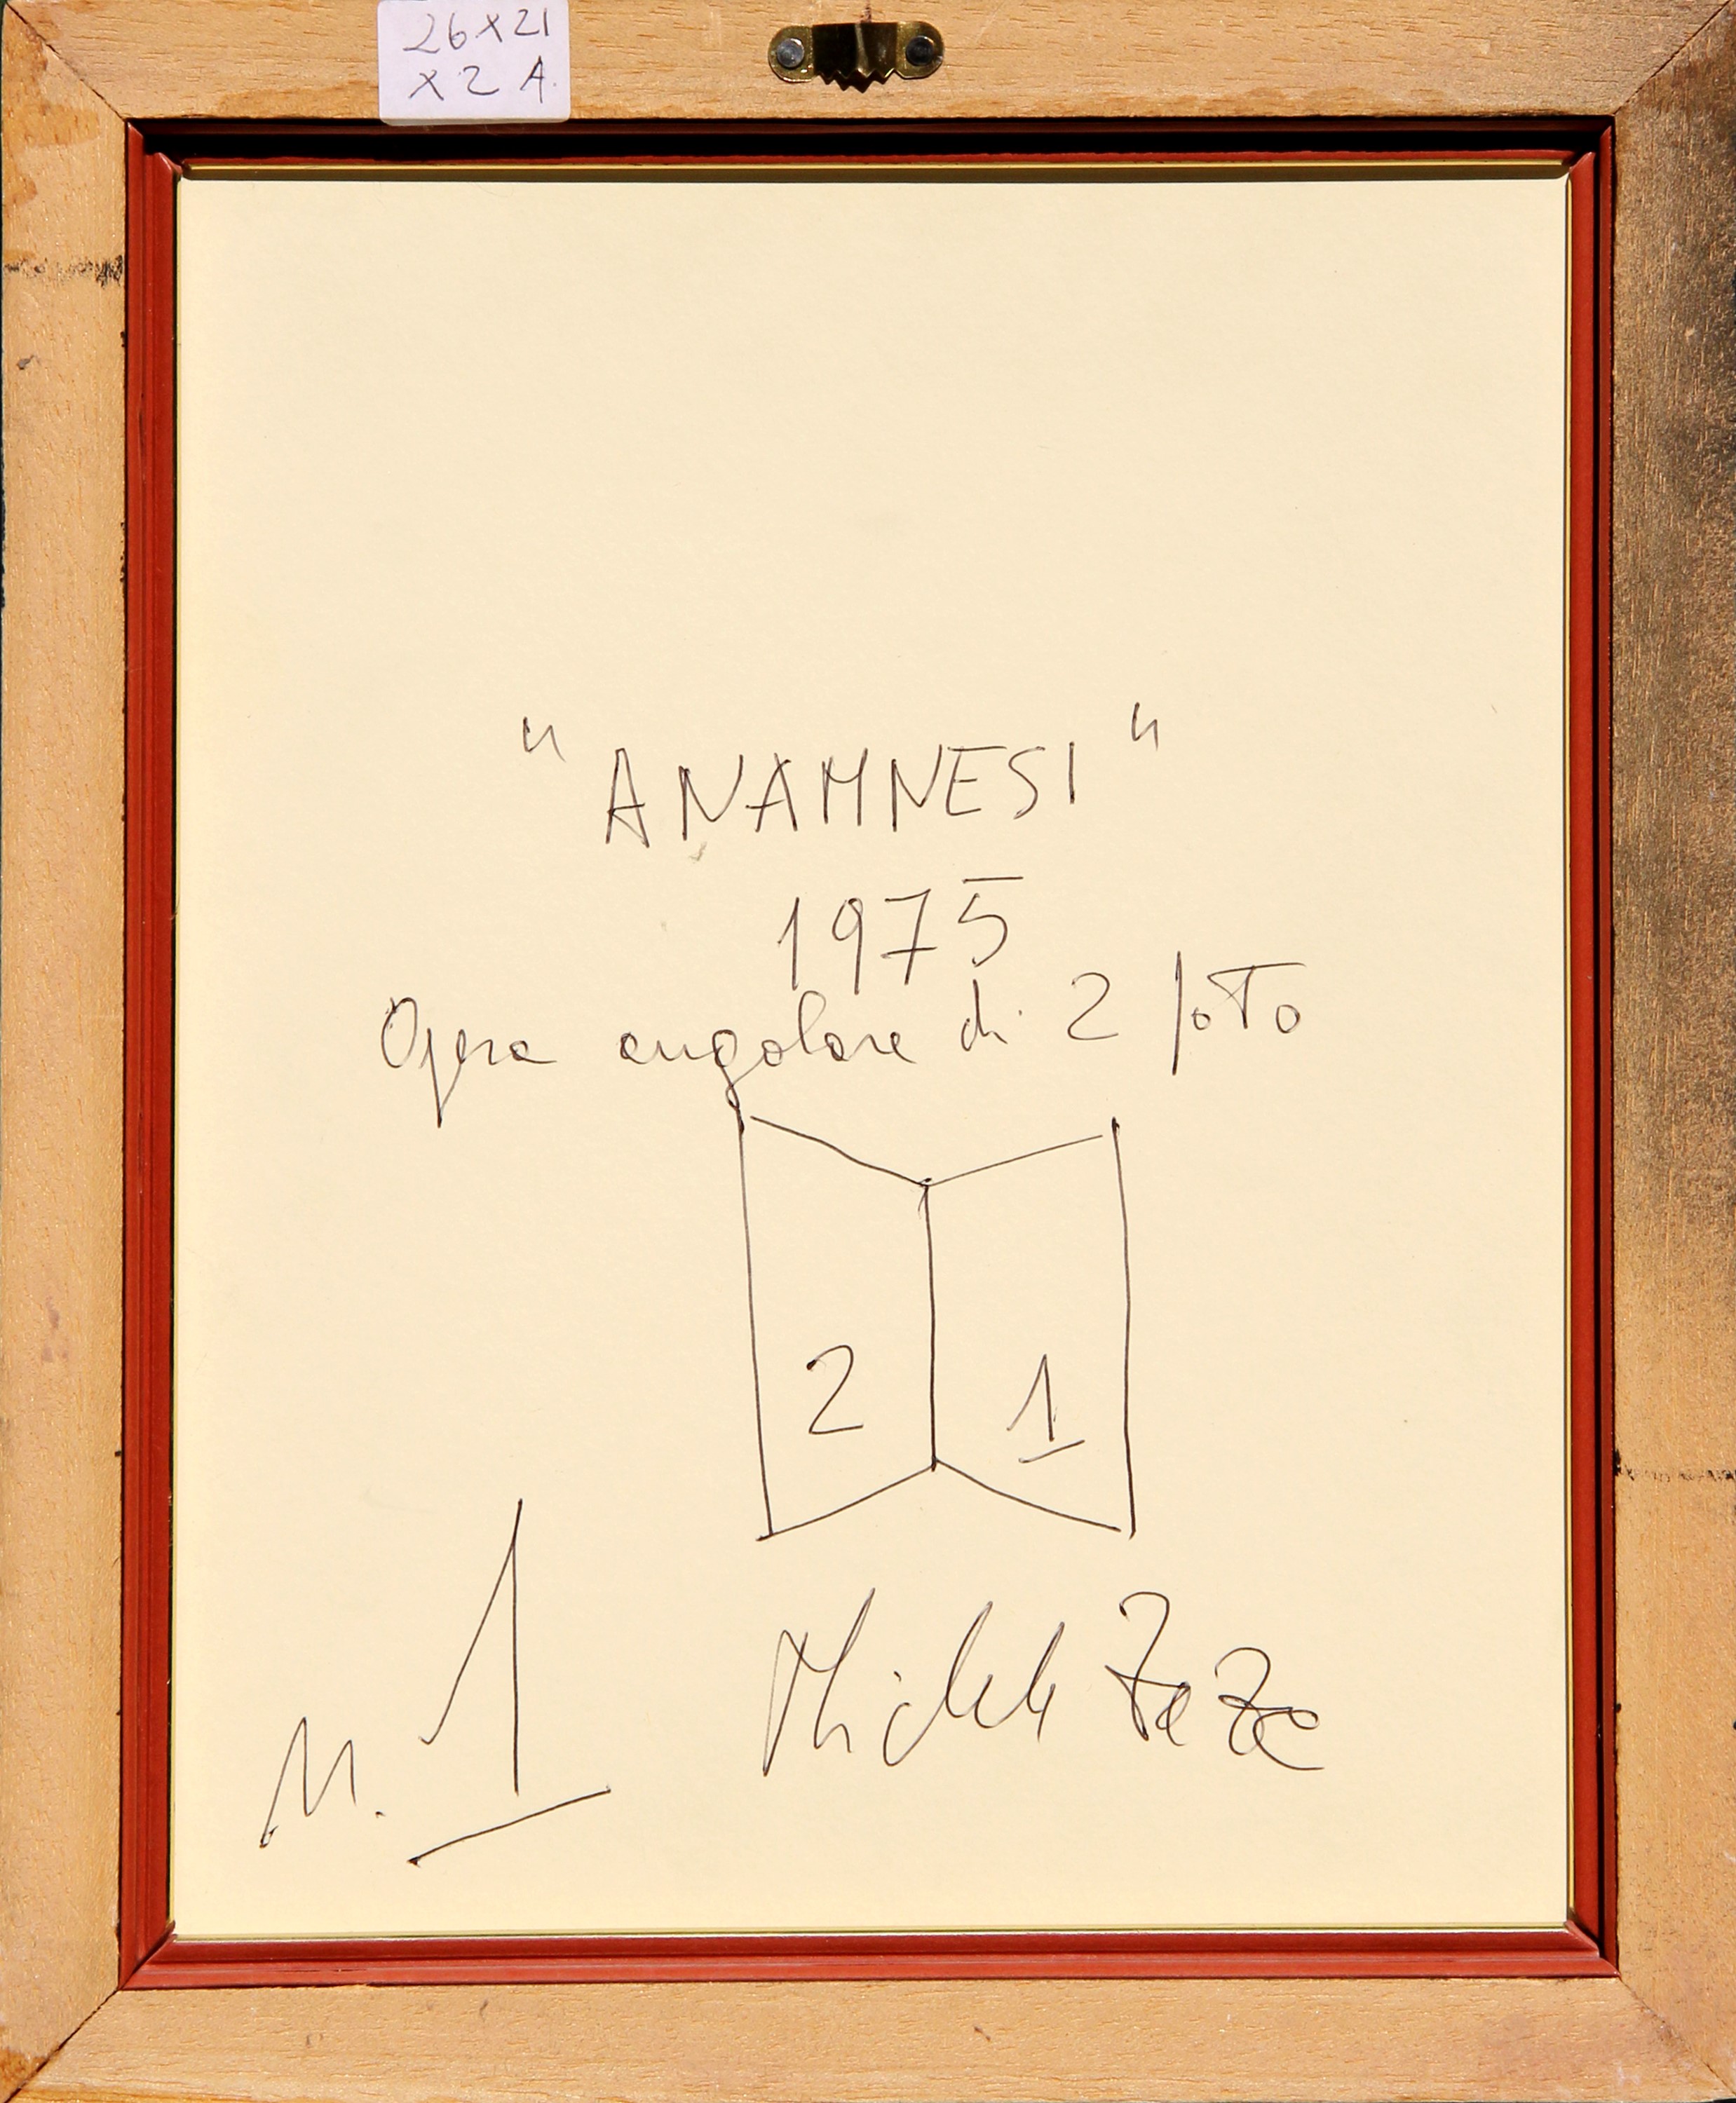 26x21
x2 A.
"ANAMNESI"
1975
Opera angolare di 2 foto
2 1
N. 1
Michele Zaza